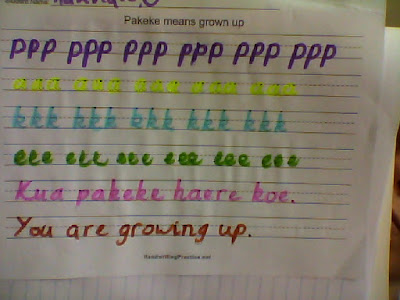 Pakeke means grown up
ppp ppp ppp ppp ppp ppp
aaa aaa aaa aaa aaa
kkk kkk kkk kkk kkk
eee eee eee eee eee eee
Kua pakeke haere koe.
You are growing up.
HandwritingPractice.net